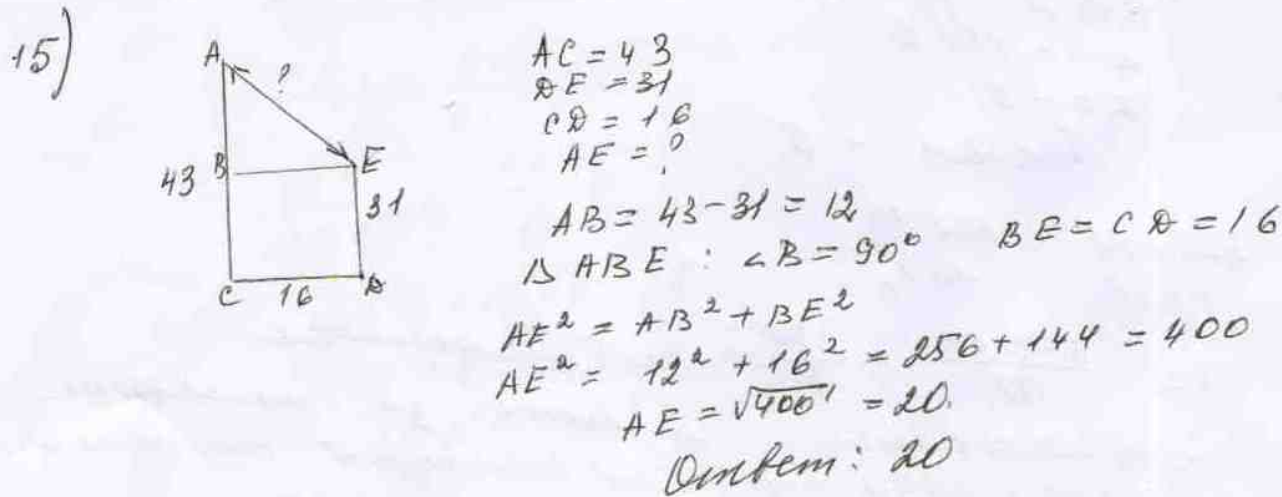 15)
A
?
43 B
E
31
C 16 D
AC = 43
DE = 31
CD = 16
AE = ?
AB = 43-31 = 12
△ABE : ∠B = 90° BE = CD = 16
AE² = AB² + BE²
AE² = 12² + 16² = 256 + 144 = 400
AE = √400 = 20.
Ответ: 20